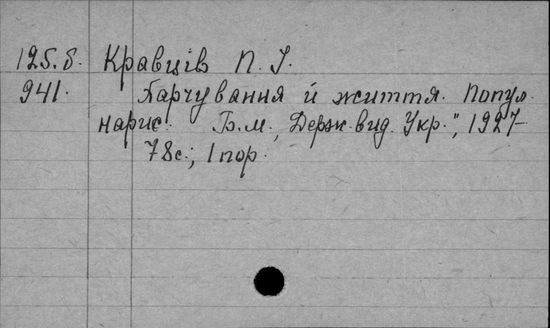 125.б. Кравців П. І.
941. Харчування й життя. Попул.
нарис. Б.м., „Держ. вид. Укр.", 1927
78с.; 1 пор.